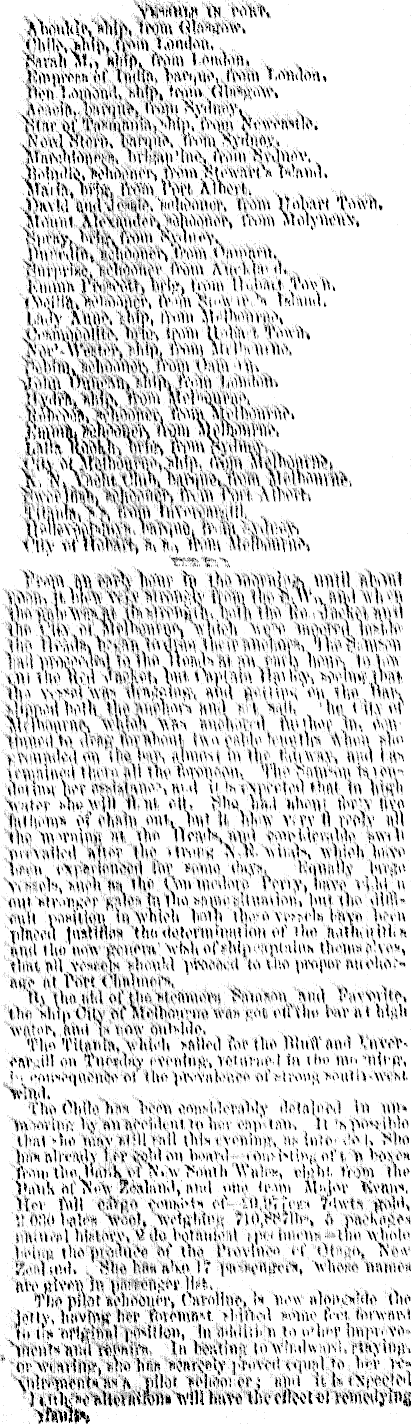 VESSELS IN PORT.
Aboukir, ship, from Glasgow.
Chile, ship, from London.
Sarah M., ship, from London.
Empress of India, barque, from London.
Ben Lomond, ship, from Glasgow.
Acacia, barque, from Sydney.
Star of Tasmania, ship, from Newcastle.
barque, from Sydney.
Marchioness, brigantine, from Sydney.
schooner, from Stewart's Island.
Maria, brig, from Port Albert.
David and Jessie, schooner, from Hobart Town.
Mount Alexander, schooner, from Molyneux.
Spray, brig, from Sydney.
Dunedin, schooner, from Oamaru.
Surprise, schooner, from Auckland.
Emma Prescott, brig, from Hobart Town.
Cecilia, schooner, from Stewart's Island.
Lady Anne, ship, from Melbourne.
Cosmopolite, brig, from Hobart Town.
Nor'-Wester, ship, from Melbourne.
schooner, from Oamaru.
John Duncan, ship, from London.
Hydra, ship, from Melbourne.
schooner, from Melbourne.
schooner, from Melbourne.
Lalla Rookh, brig, from Sydney.
City of Melbourne, ship, from Melbourne.
Yacht Club, barque, from Melbourne.
schooner, from Port Albert.
Titania, s.s., from Invercargill.
Hellespont, barque, from Sydney.
City of Hobart, s.s., from Melbourne.
From an early hour in the morning, until about
noon, it blew very strongly from the S.W., and when
the gale was at its strength, both the Red Jacket and
the City of Melbourne, which were moored inside
the Heads, began dragging their anchors. The Samson
had proceeded to the Heads at an early hour, to tow
out the Red Jacket, but Captain Harby, seeing that
the vessel was dragging, and getting on the Bar,
slipped both the anchors and set sail. The City of
Melbourne, which was anchored further in, con-
tinued to drag for about two cable lengths when she
grounded on the bar, almost in the fairway, and has
remained there all the forenoon. The Samson is ren-
dering her assistance, and it is expected that in high
water she will float off. She had about forty five
fathoms of chain out, but it blew very fiercely all
the morning at the Heads, and considerable swell
prevailed after the strong N.E. winds, which have
been experienced for some days. Equally large
vessels, such as the Commodore Perry, have ridden
out stronger gales in the same situation, but the diffi-
cult position in which both these vessels have been
placed justifies the determination of the authorities
and the now general wish of ship captains themselves,
that all vessels should proceed to the proper anchor-
age at Port Chalmers.
By the aid of the steamers Samson and Favorite,
the ship City of Melbourne was got off the bar at high
water, and is now outside.
The Titania, which sailed for the Bluff and Inver-
cargill on Tuesday evening, returned in the morning,
in consequence of the prevalence of strong south-west
wind.
The Chile has been considerably detained in un-
mooring by an accident to her capstan. It is possible
that she may still sail this evening, as intended. She
has already her gold on board—consisting of ten boxes
from the Bank of New South Wales, eight from the
Bank of New Zealand, and one from Major Keans.
Her full cargo consists of gold,
bales wool, weighing 710,887lbs, 5 packages
natural history, 2 do botanical specimens—the whole
being the produce of the Province of Otago, New
Zealand. She has also 17 passengers, whose names
are given in passenger list.
The pilot schooner, Caroline, is now alongside the
Jetty, having her foremast shifted some feet forward
to its original position, in addition to other improve-
ments and repairs. In beating to windward, staying,
or wearing, she has scarcely proved equal to her re-
quirements as a pilot schooner; and it is expected
these alterations will have the effect of remedying
faults.